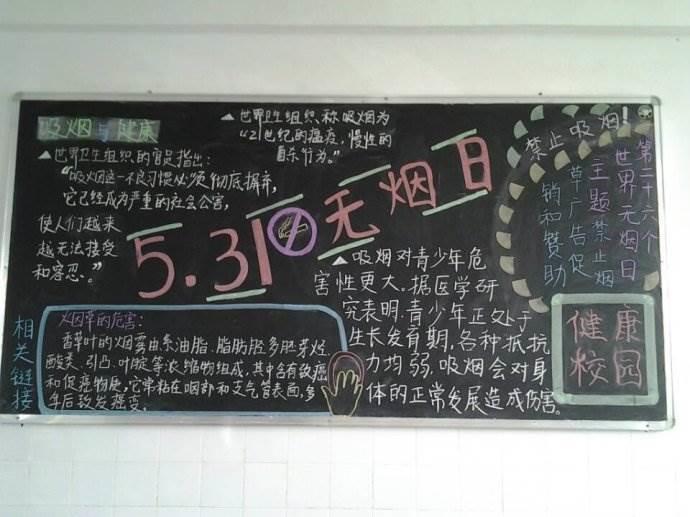 吸烟与健康
▲世界卫生组织的官员指出:
“吸烟这一不良习惯必须彻底摒弃,
它已经成为严重的社会公害,
使人们越来
越无法接受
和容忍。”
▲世界卫生组织、称吸烟为
“21世纪的瘟疫,慢性的
自杀行为。”
5.31 无烟日
禁止吸烟!
第二十六个
世界无烟日
主题禁止烟
草广告促
销和赞助
▲吸烟对青少年危
害性更大。据医学研
究表明:青少年正处于
生长发育期,各种抵抗
力均弱,吸烟会对身
体的正常发展造成伤害。
健康
校园
相关链接
烟草的危害:
香草叶的烟雾由
焦油脂、脂肪胫多胚芽烃
酸类、引凸、叶腚等浓缩物组成,其中含有致癌
和促癌物质,它常粘在咽部和支气管表面,多
年后致发癌变。